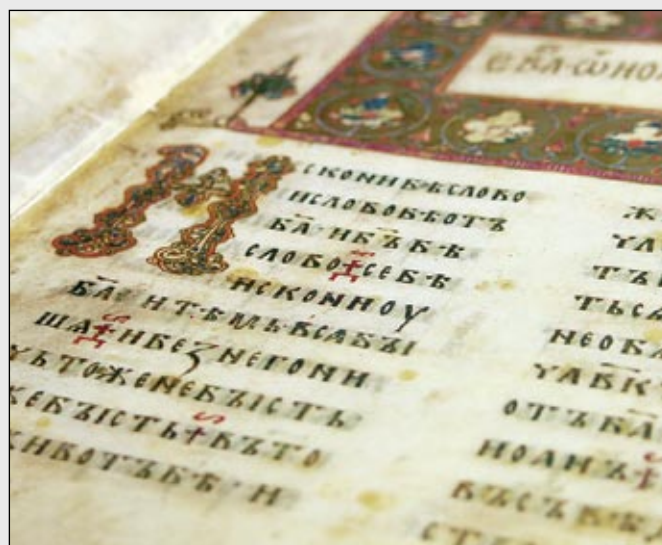 ЄВА·Ѿ ИОА
И
СКОНИБѢСЛОВО
ИСЛОВОБѢОТЪ
БА҃·ИБЪ҃БѢ
СЛОВО·СЕБѢ
ИСКОНИОУ
БА҃·ИТѢМЬВЬСꙖБЫ
ШѦ·ИБЕꙀНЕГОНИ
ЧЬТОЖЕНЕБЫСТЬ
ЖЕБЫСТЬ·ВЪТО
ЖИВОТЪБѢ·И
Ж
ЧЛ
ТЪ
ТЬСѦ
НЕОБѦ
ЧЛВ҃КЪ
ОТЪБА҃
ИОАНЪ
ВЪСЪВѢД